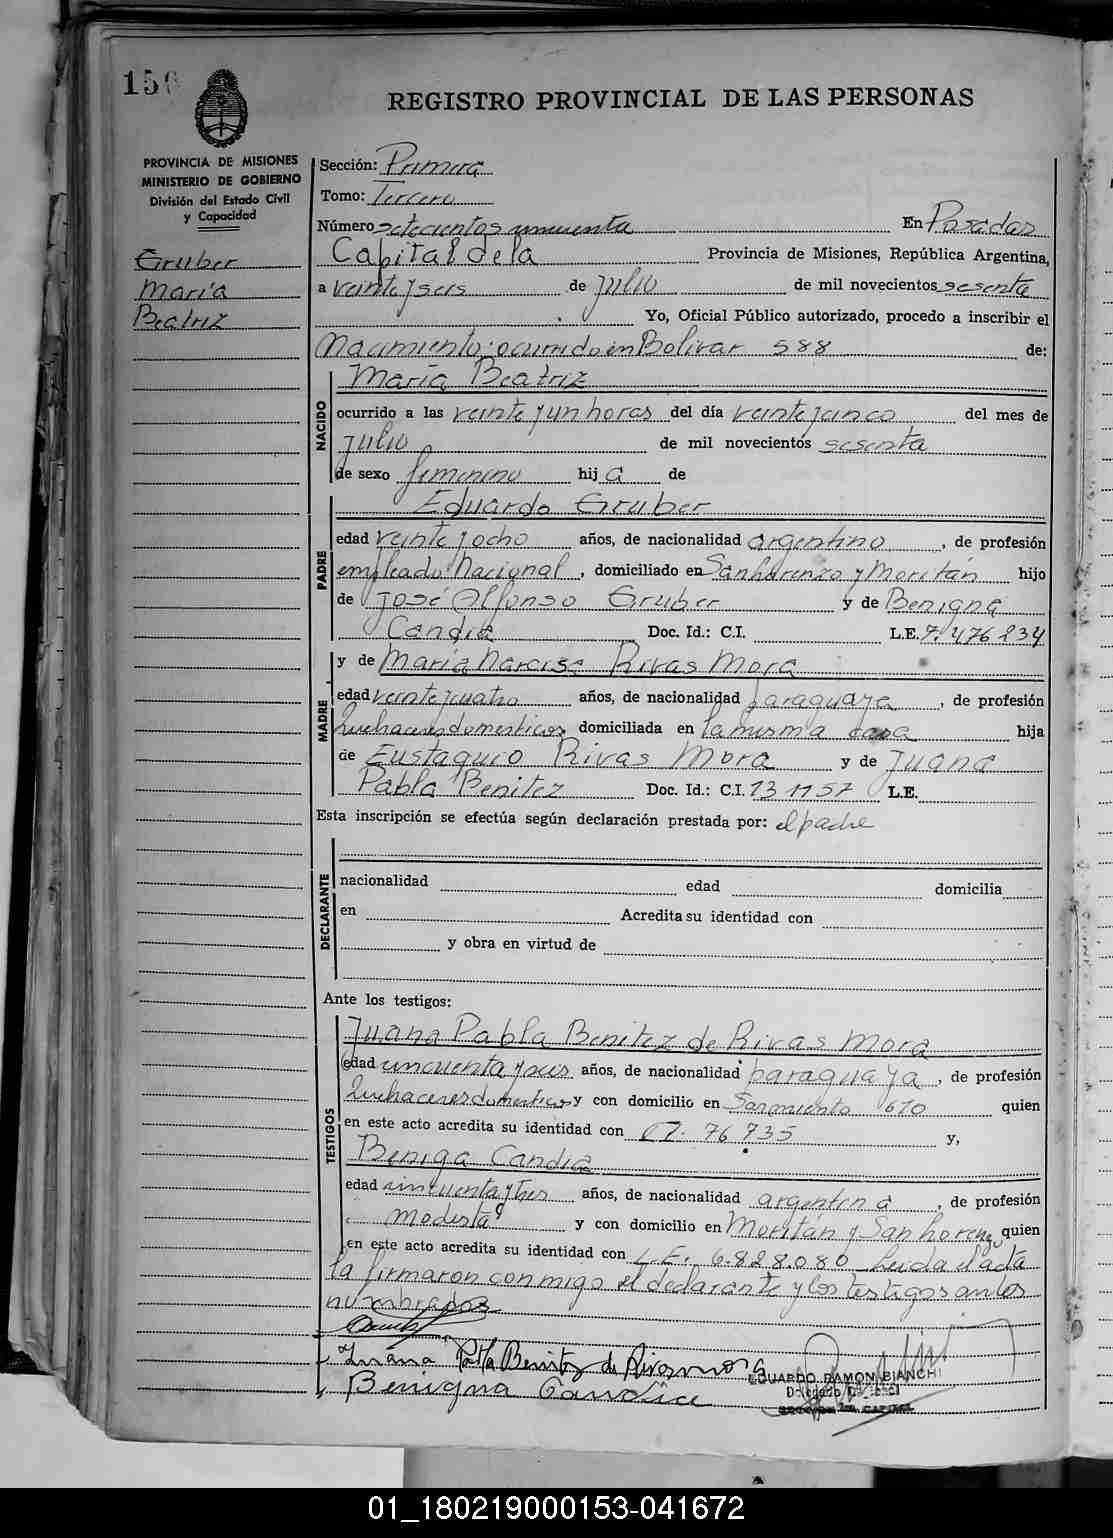 150
REGISTRO PROVINCIAL DE LAS PERSONAS
PROVINCIA DE MISIONES
MINISTERIO DE GOBIERNO
División del Estado Civil
y Capacidad
Gruber
María
Beatriz
Sección: Primera
Tomo: Tercero
Número setecientos cincuenta En Posadas
Capital de la Provincia de Misiones, República Argentina,
a veinte y seis de julio de mil novecientos sesenta
Yo, Oficial Público autorizado, procedo a inscribir el
Nacimiento: ocurrido en Bolivar 588 de:
NACIDO
María Beatriz
ocurrido a las veinte y un horas del día veinte y cinco del mes de
julio de mil novecientos sesenta
de sexo femenino hij a de
PADRE
Eduardo Gruber
edad veinte y ocho años, de nacionalidad argentino, de profesión
empleado Nacional, domiciliado en San Lorenzo y Moritán hijo
de José Alfonso Gruber y de Benigna
Candia Doc. Id.: C.I. L.E. 7.476234
MADRE
y de María Narcisa Rivas Mora
edad veinte y cuatro años, de nacionalidad paraguaya, de profesión
Quehaceres domesticos domiciliada en la misma casa hija
de Eustaquio Rivas Mora y de Juana
Pabla Benitez Doc. Id.: C.I. 131157 L.E.
Esta inscripción se efectúa según declaración prestada por: el padre
DECLARANTE
nacionalidad edad domicilia
en Acredita su identidad con
y obra en virtud de
Ante los testigos:
TESTIGOS
Juana Pabla Benitez de Rivas Mora
edad cincuenta y seis años, de nacionalidad paraguaya, de profesión
Quehaceres domesticos y con domicilio en Sarmiento 670 quien
en este acto acredita su identidad con 76735 y,
Beniga Candia
edad cincuenta y tres años, de nacionalidad argentina, de profesión
modista y con domicilio en Moritán y San Lorenzo quien
en este acto acredita su identidad con L.E. 6.828.080 Leida el acta
la firmaron conmigo el declarante y los testigos antes
nombrados
Juana Pabla Benitez de Rivas Mora
Benigna Candia
EDUARDO RAMON BIANCHI
Delegado
SECCION 1ra. CAPITAL
01_180219000153-041672